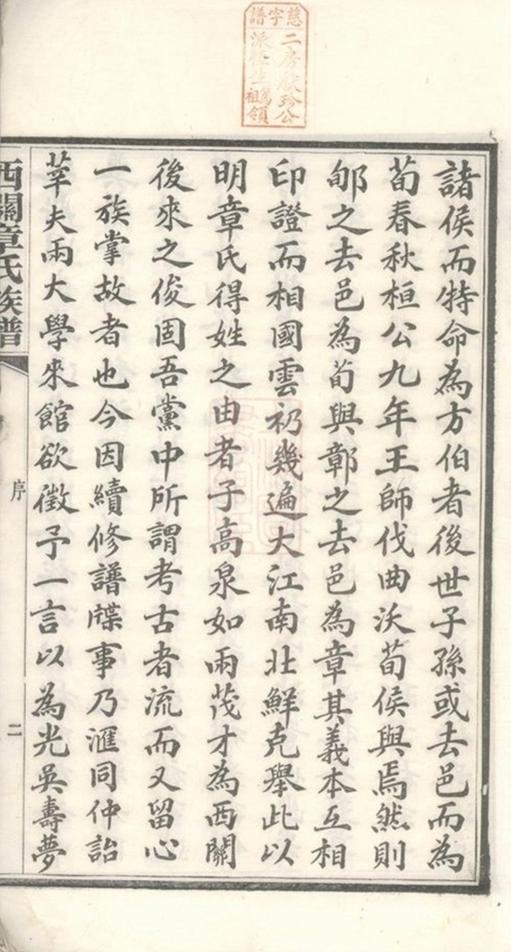 慈字譜
二房獻珍公
派
祖領
諸侯而特命為方伯者後世子孫或去邑而為
荀春秋桓公九年王師伐曲沃荀侯與焉然則
郇之去邑為荀與鄣之去邑為章其義本互相
印證而相國雲礽幾遍大江南北鮮克舉此以
明章氏得姓之由者子高泉如兩茂才為西關
後來之俊固吾黨中所謂考古者流而又留心
一族掌故者也今因續修譜牒事乃滙同仲詒
莘夫兩大學來館欲徵予一言以為光吳壽夢
西關章氏族譜
序
二